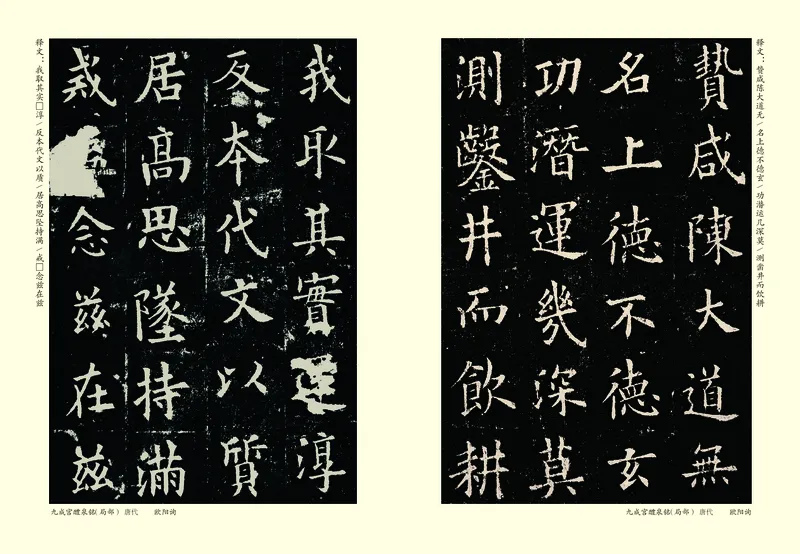 释文：贽咸陈大道无／名上德不德玄／功潜运几深莫／测凿井而饮耕
贄咸陳大道無
名上德不德玄
功潛運幾深莫
測鑿井而飲耕
九成宫醴泉铭（局部） 唐代 欧阳询
我取其實淳
反本代文以質
居高思墜持滿
戒念茲在茲
释文：我取其实□淳／反本代文以质／居高思坠持满／戒□念兹在兹
九成宫醴泉铭（局部） 唐代 欧阳询